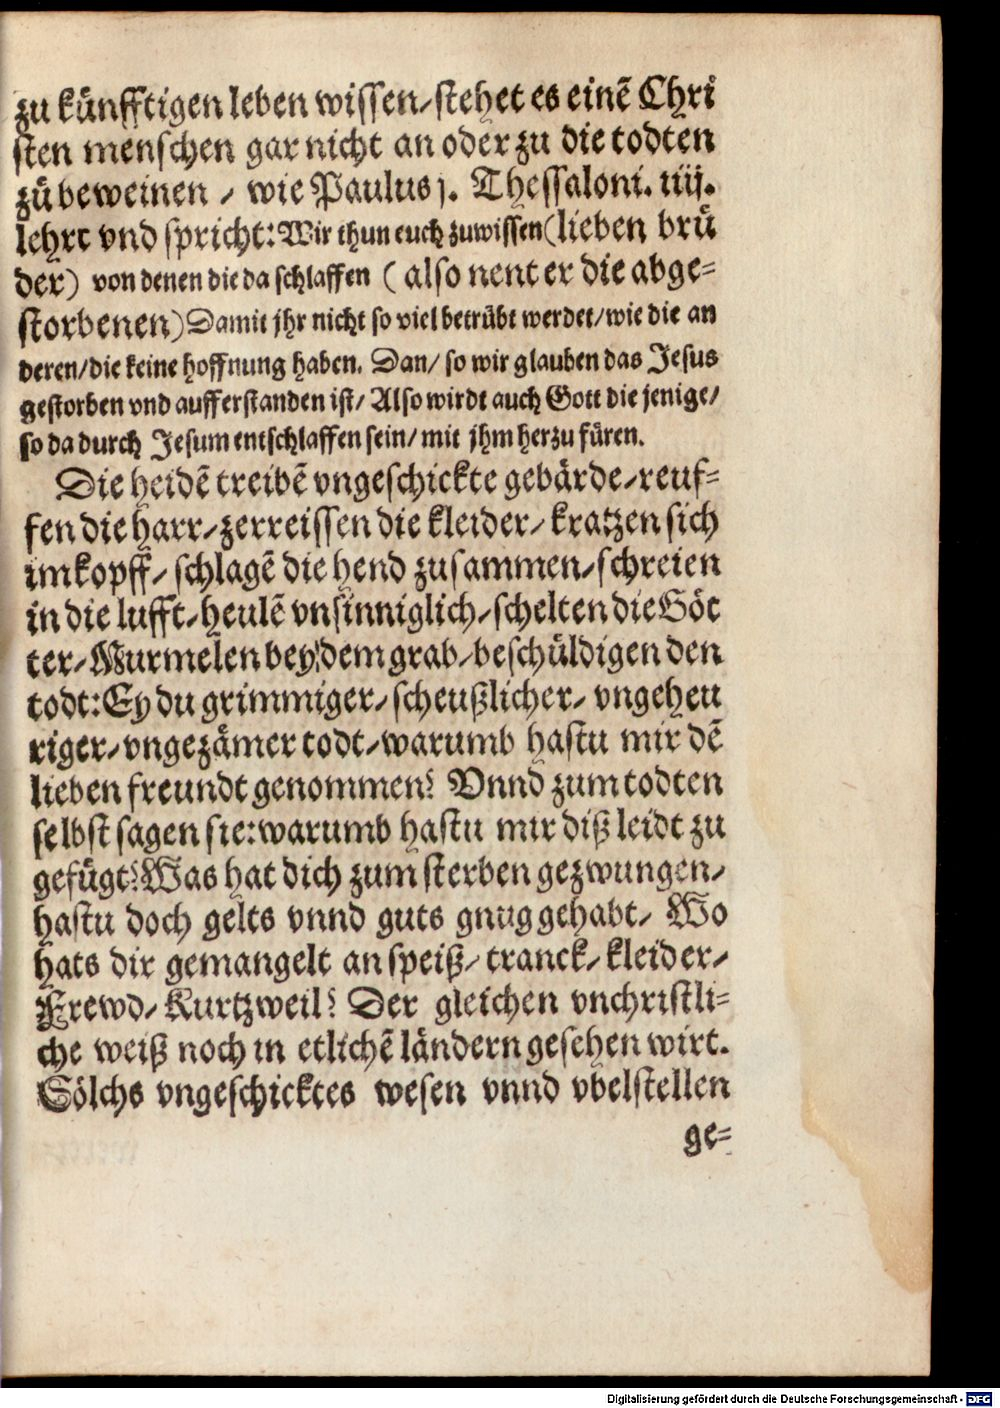 zu künfftigen leben wissen/ stehet es einē Chri
sten menschen gar nicht an oder zu die todten
zů beweinen / wie Paulus j. Thessaloni. iiij.
lehrt vnd spricht: Wir thun euch zuwissen (lieben brů
der) von denen die da schlaffen ( also nent er die abge=
storbenen) Damit jhr nicht so viel betrübt werdet/ wie die an
deren/ die keine hoffnung haben. Dan/ so wir glauben das Jesus
gestorben vnd aufferstanden ist/ Also wirdt auch Gott die jenige/
so da durch Jesum entschlaffen sein/ mit jhm herzu füren.
Die heidē treibē vngeschickte gebärde/ reuf=
fen die harr/ zerreissen die kleider/ kratzen sich
im kopff/ schlagē die hend zusammen/ schreien
in die lufft/ heulē vnsinniglich/ schelten die Göt
ter/ Murmelen bey dem grab/ beschüldigen den
todt: Ey du grimmiger/ scheußlicher/ vngeheu
riger/ vngezämer todt/ warumb hastu mir dē
lieben freundt genommen? Vnnd zum todten
selbst sagen sie: warumb hastu mir diß leidt zu
gefügt? Was hat dich zum sterben gezwungen/
hastu doch gelts vnnd guts gnug gehabt/ Wo
hats dir gemangelt an speiß/ tranck/ kleider/
Frewd/ Kurtzweil? Der gleichen vnchristli=
che weiß noch in etlichē ländern gesehen wirt.
Sölchs vngeschicktes wesen vnnd vbelstellen
ge=
Digitalisierung gefördert durch die Deutsche Forschungsgemeinschaft - DFG